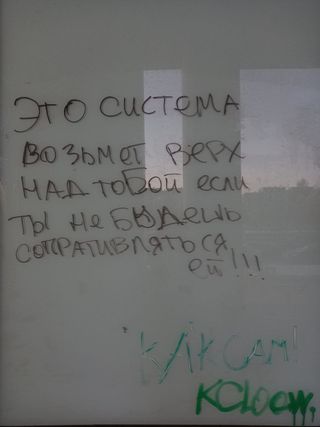 ЭТО СИСТЕМА
ВОЗЬМЕТ ВЕРХ
НАД ТОБОЙ если
ТЫ НЕ БУДЕШЬ
СОПРАТИВЛЯТЬСЯ
ей!!!
К ЛІКСАМ!
KClocw.